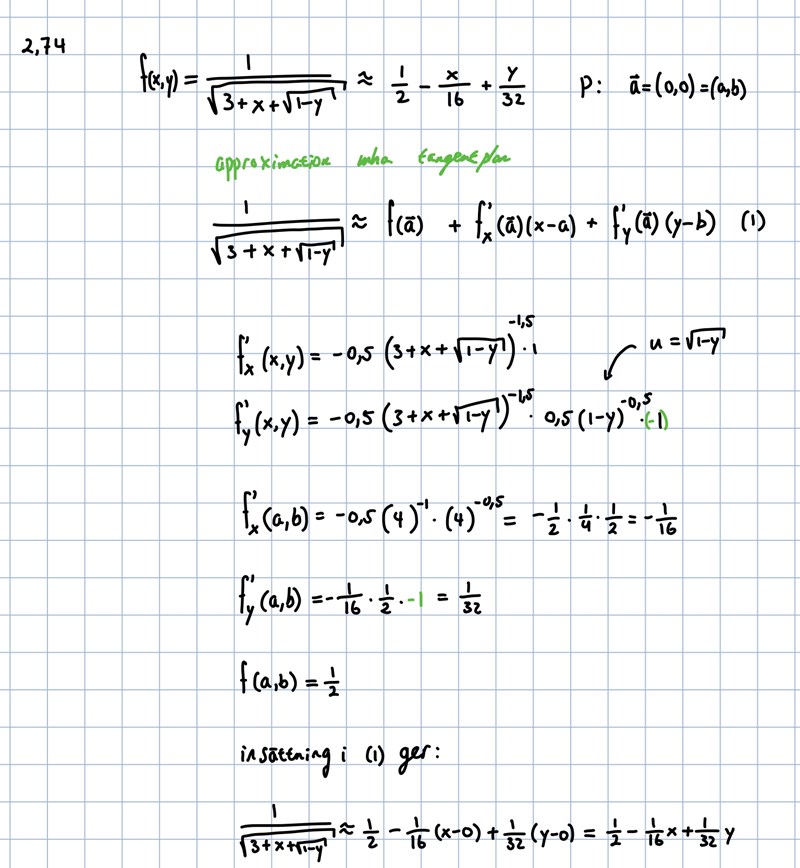 2,74
f(x,y) = 1/√(3+x+√(1-y)) ≈ 1/2 - x/16 + y/32    P: a⃗ = (0,0) = (a,b)
approximation mha tangentplan
1/√(3+x+√(1-y)) ≈ f(a⃗) + f'ₓ(a⃗)(x-a) + f'ᵧ(a⃗)(y-b) (1)
f'ₓ(x,y) = -0,5 (3+x+√(1-y))^-1,5 · 1    u = √(1-y)
f'ᵧ(x,y) = -0,5 (3+x+√(1-y))^-1,5 · 0,5 (1-y)^-0,5 · (-1)
f'ₓ(a,b) = -0,5 (4)^-1 · (4)^-0,5 = -1/2 · 1/4 · 1/2 = -1/16
f'ᵧ(a,b) = -1/16 · 1/2 · -1 = 1/32
f(a,b) = 1/2
insättning i (1) ger:
1/√(3+x+√(1-y)) ≈ 1/2 - 1/16 (x-0) + 1/32 (y-0) = 1/2 - 1/16 x + 1/32 y